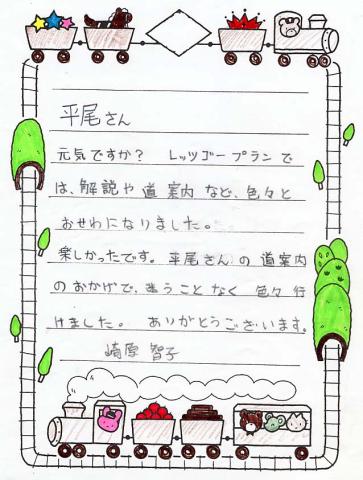 平尾さん
元気ですか？ レッツゴープランで
は、解説や道案内など、色々と
おせわになりました。
楽しかったです。平尾さんの道案内
のおかげで、迷うことなく色々行
けました。 ありがとうございます。
崎原 智子